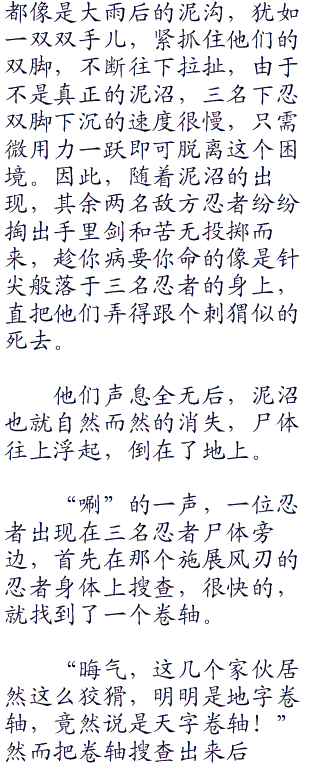 都像是大雨后的泥沟，犹如
一双双手儿，紧抓住他们的
双脚，不断往下拉扯，由于
不是真正的泥沼，三名下忍
双脚下沉的速度很慢，只需
微用力一跃即可脱离这个困
境。因此，随着泥沼的出
现，其余两名敌方忍者纷纷
掏出手里剑和苦无投掷而
来，趁你病要你命的像是针
尖般落于三名忍者的身上，
直把他们弄得跟个刺猬似的
死去。
他们声息全无后，泥沼
也就自然而然的消失，尸体
往上浮起，倒在了地上。
“唰”的一声，一位忍
者出现在三名忍者尸体旁
边，首先在那个施展风刃的
忍者身体上搜查，很快的，
就找到了一个卷轴。
“晦气，这几个家伙居
然这么狡猾，明明是地字卷
轴，竟然说是天字卷轴！”
然而把卷轴搜查出来后